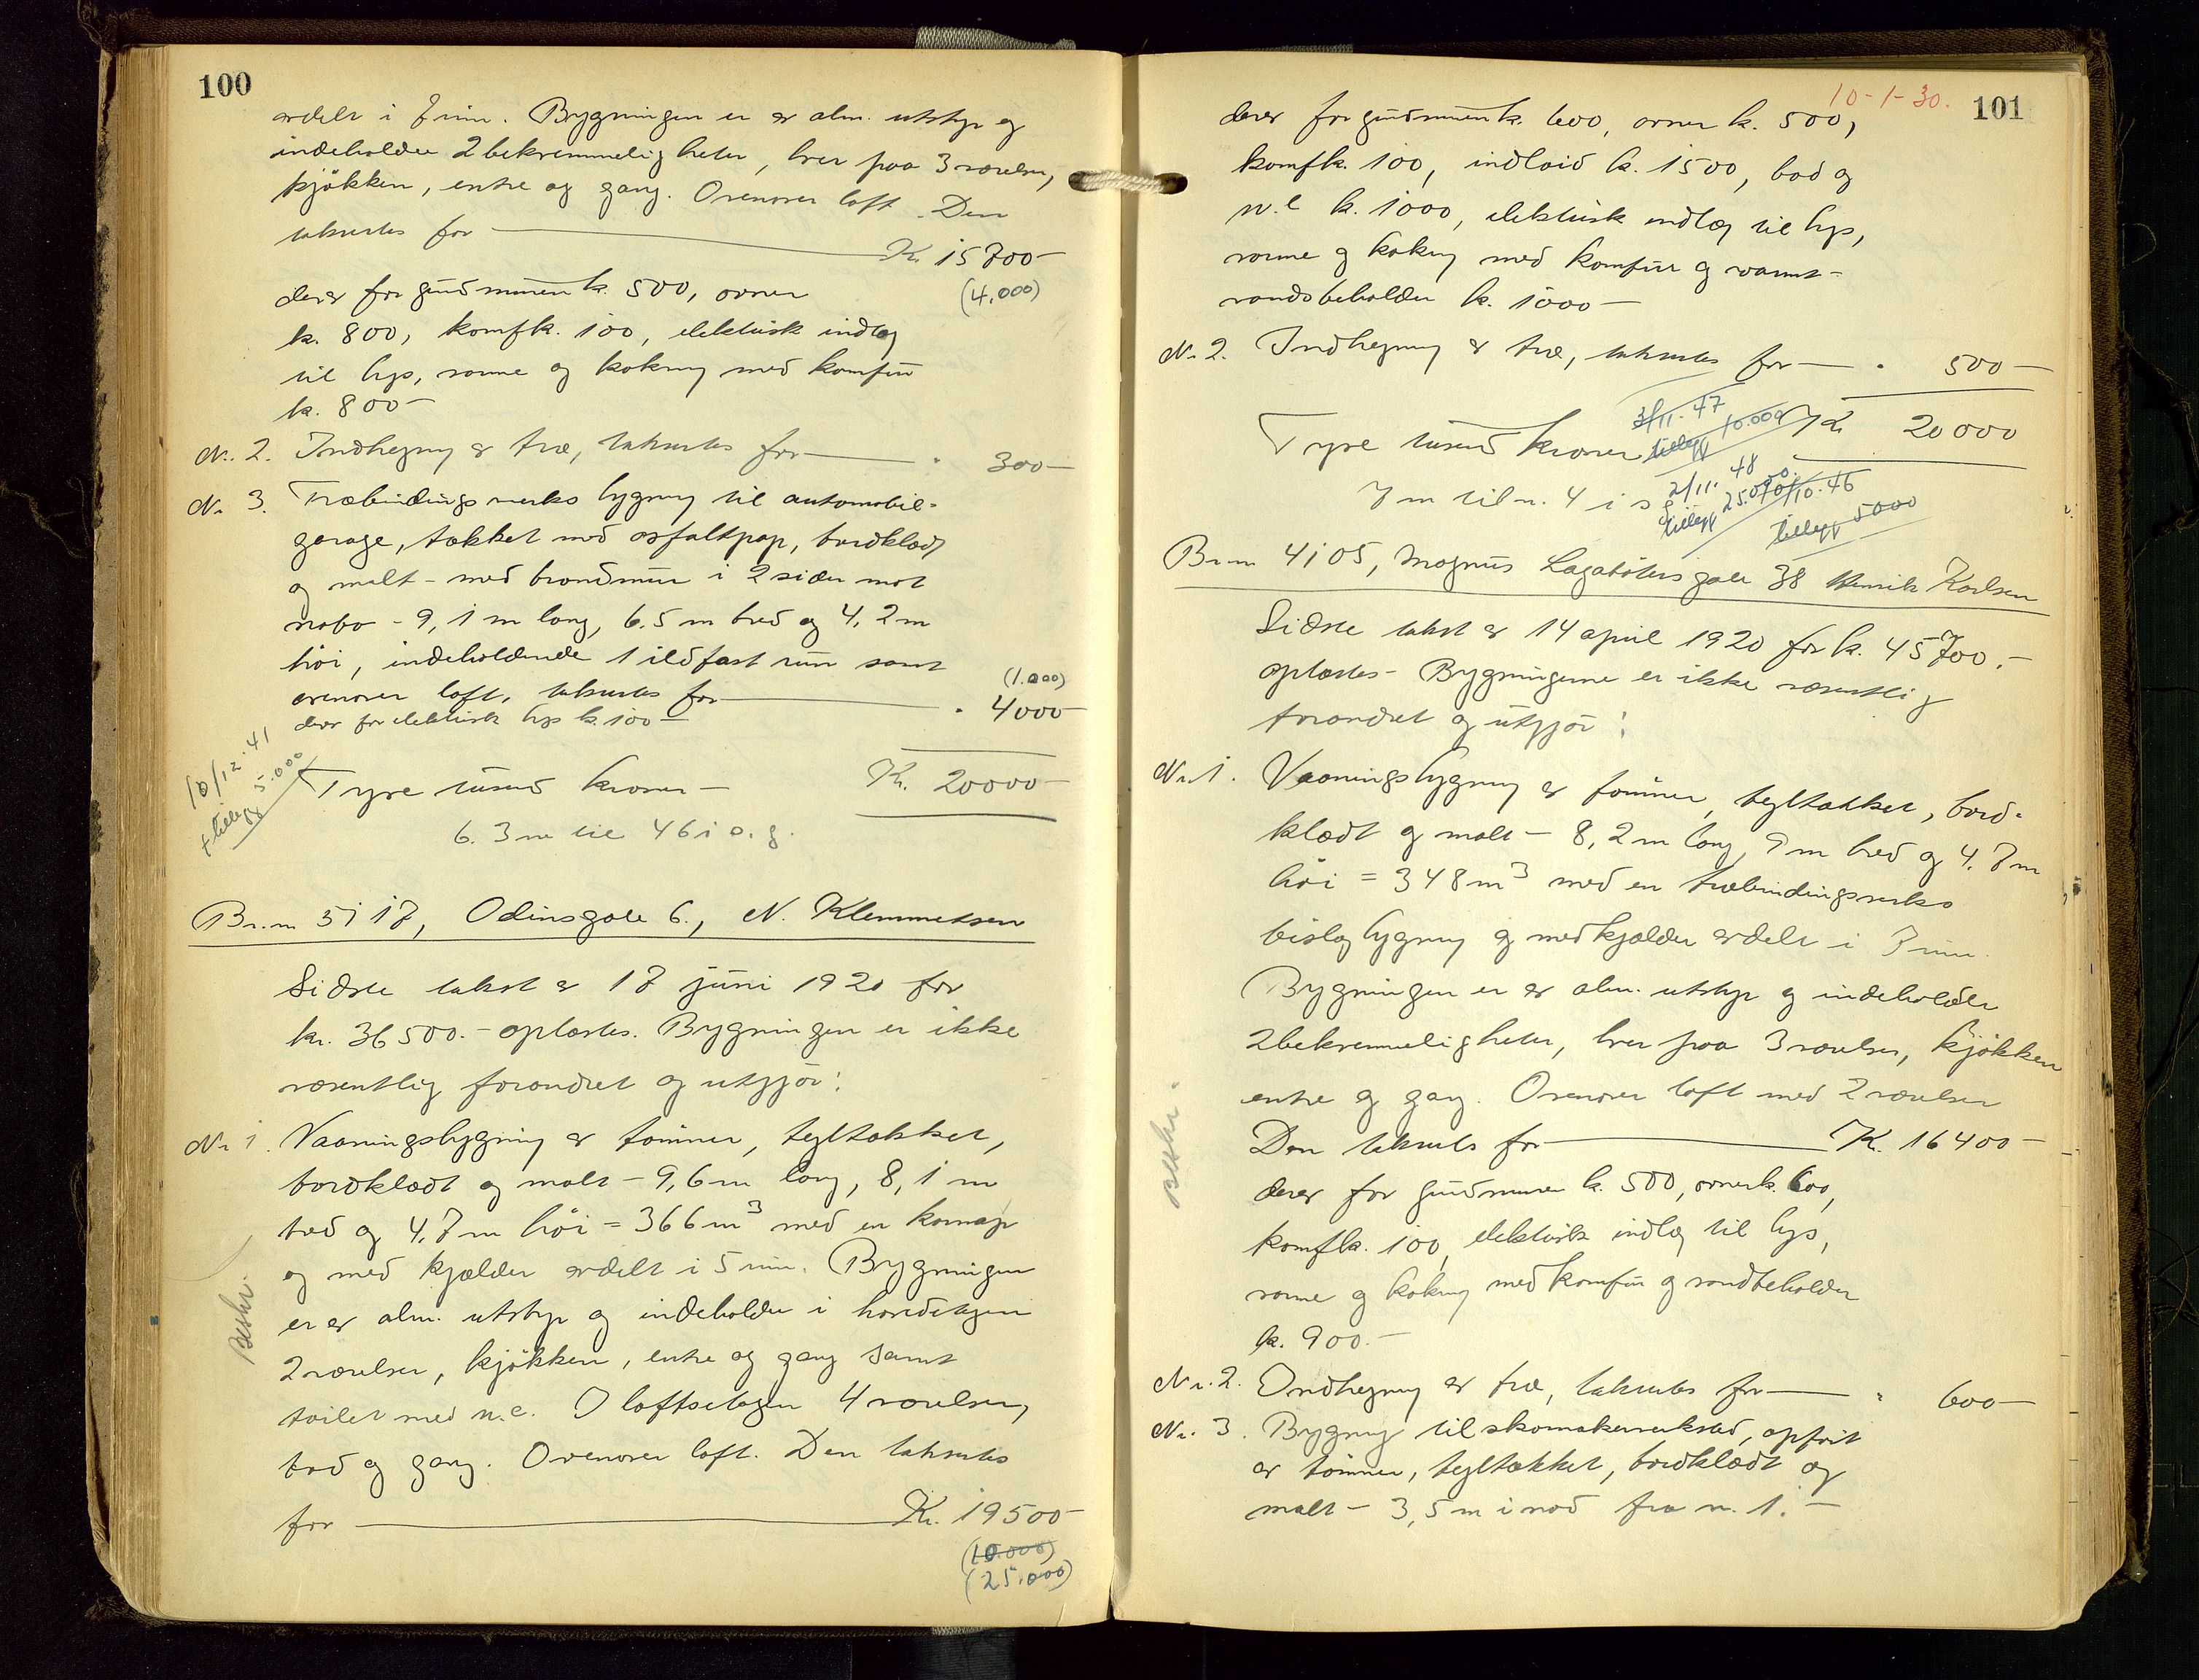 100
avdelt i 7 rum. Bygningen er av alm. utstyr og
indeholder 2 bekvemmeligheter, hver paa 3 værelser,
kjøkken, entre og gang. Ovenover loft. Den
takseres for Kr. 15700-
(4.000)
derav for grundmuren k. 500, ovner
k. 800, komf k. 100, elektrisk indlæg
til lys, varme og kokning med komfur
k. 800-
Nr. 2. Indhegning av træ, takseres for " 300-
Nr. 3. Træbindingsverks bygning til automobil-
garage, tækket med asfaltpap, bordklædt
og malt - med brandmur i 2 sider mot
nabo - 9,1 m lang, 6.5 m bred og 4,2 m
høi, indeholdende 1 ildfast rum samt
ovenover loft, takseres for " 4000-
(1.000)
derav for elektrisk lys k. 100-
10/12-41
+ tillegg 5.000
Tyve tusend kroner - Kr. 20000-
6.3 m til 46 i s. g.
Br.nr 5 i 17, Odinsgate 6., N. Klemmetsen
Sidste takst av 17 juni 1920 for
kr. 36500.- oplæstes. Bygningen er ikke
væsentlig forandret og utgjør:
Nr 1. Vaaningsbygning av tømmer, tegltækket,
bordklædt og malt - 9,6 m lang, 8,1 m
bred og 4,7 m høi = 366 m³ med en karnap
og med kjælder avdelt i 5 rum. Bygningen
er av alm. utstyr og indeholder i hovedetagen
2 værelser, kjøkken, entre og gang samt
toilet med w.c. I loftsetagen 4 værelser,
bad og gang. Ovenover loft. Den takseres
for Kr. 19500-
(10.000)
(25.000)
Beskr.
10-1-30. 101
derav for grundmuren k. 600, ovner k. 500,
komf k. 100, indlaid k. 1500, bad og
w.c k. 1000, elektrisk indlæg til lys,
varme og kokning med komfur og varmt-
vandsbeholder k. 1000-
Nr. 2. Indhegning av træ, takseres for " 500-
Tyve tusend kroner Kr. 20000
3/11-47
tillegg 10.000
7 m til nr. 4 i s g
2/11-48
tillegg 25.000
10/10-46
tillegg 5000
Br.nr 4 i 05, Magnus Lagabøters gate 38 Henrik Karlsen
Sidste takst av 14 april 1920 for k. 45700.-
oplæstes - Bygningerne er ikke væsentlig
forandret og utgjør:
Nr 1. Vaaningsbygning av tømmer, tegltækket, bord-
klædt og malt - 8,2 m lang, 9 m bred og 4.7 m
høi = 348 m³ med en træbindingsverks
bislagbygning og med kjælder avdelt i 7 rum.
Bygningen er av alm. utstyr og indeholder
2 bekvemmeligheter, hver paa 3 værelser, kjøkken
entre og gang. Ovenover loft med 2 værelser
Den takseres for K. 16400-
derav for grundmuren k. 500, ovner k. 600,
komf k. 100, elektrisk indlæg til lys,
varme og kokning med komfur og vandbeholder
k. 900.-
Nr. 2. Indhegning av træ, takseres for " 600-
Nr. 3. Bygning til skomakerverksted, opført
av tømmer, tegltækket, bordklædt og
malt - 3,5 m i nord fra nr. 1.-
Beskr.